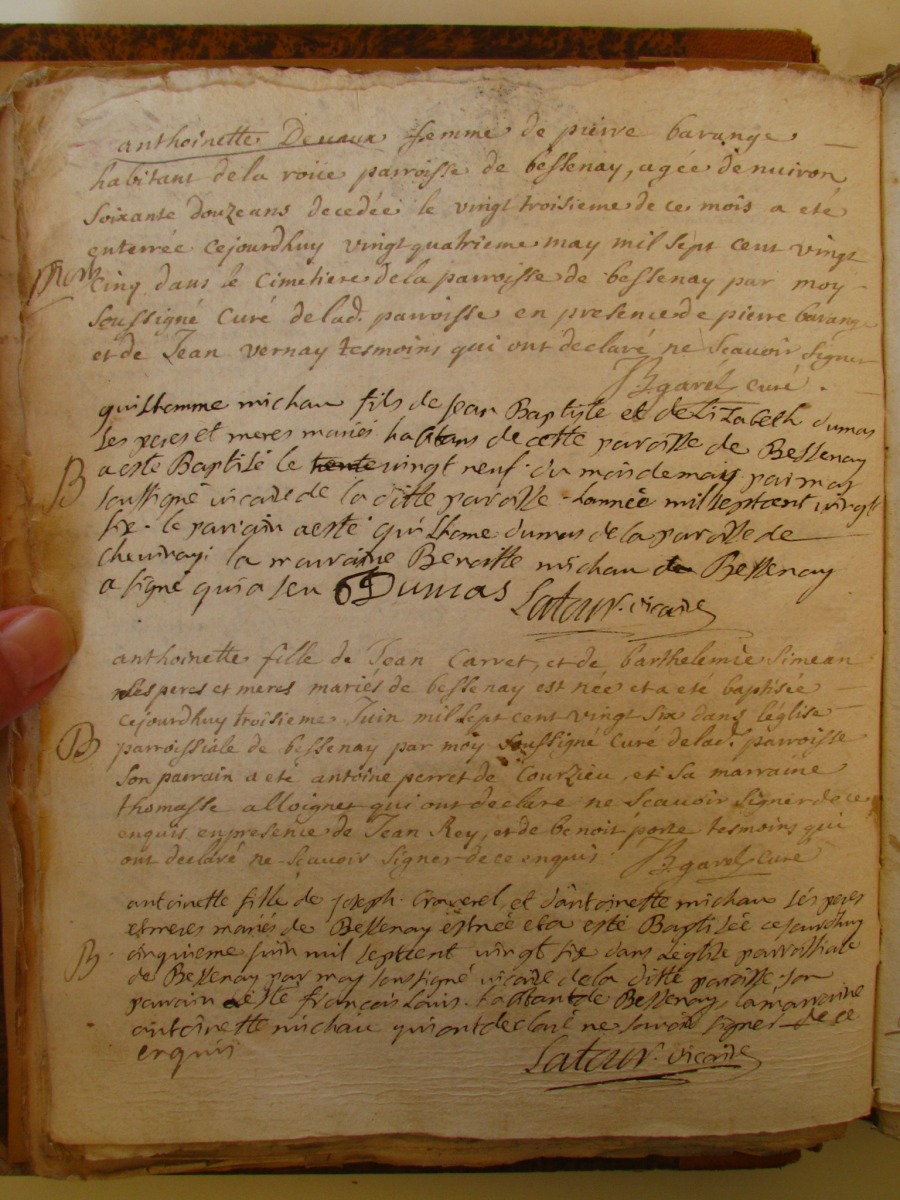 anthoinette Devaux femme de pierre barange
habitant de la roüe parroisse de bessenay, agée d'enuiron
soixante douze ans decedée le vingt troisieme de ce mois a eté
enterrée cejourdhuy vingt quatrieme may mil sept cent vingt
cinq dans le cimetiere de la parroisse de bessenay par moy
soussigné curé de lad. parroisse en presence de pierre barange
et de Jean vernay tesmoins qui ont declaré ne scauoir signer
B garel curé.
guilhomme michau fils de Jean Baptiste et de Elizabeth dumas
les peres et meres mariés habitans de cette paroisse de Bessenay
B
a esté Baptisé le trente vingt neuf du mois de may par moy
soussigné vicaire de la ditte paroisse l'année mil sept cent vingt
six. le parain a esté guilhome dumas de la paroisse de
chevinay: la mauraine Benoitte michau de Bessenay
a signé qui a sçu G Dumas Latour vicaire
anthoinette fille de Jean Carret, et de barthelemie Simean
les peres et meres mariés de bessenay est née et a eté baptisée
cejourdhuy troisieme Juin mil sept cent vingt six dans l'église
B
parroissiale de bessenay par moy soussigné curé de lad. parroisse
son parrain a eté antoine perret de Courzieu, et sa marraine
thomasse alloignet qui ont declaré ne scauoir signer de ce
enquis en presence de Jean Rey, et de benoit porte tesmoins qui
ont declaré ne scauoir signer de ce enquis B garel curé
antoinette fille de joseph Croverel, et d'antoinette michau les peres
et meres mariés de Bessenay est née et a esté Baptisée cejourdhuy
B
cinquieme juin mil sept cent vingt six dans l'église parroissiale
de Bessenay par moy soussigné vicaire de la ditte paroisse son
parain a esté francois Louis habitant de Bessenay, la marraine
antoinette michau qui ont declaré ne savoir signer de ce
enquis
Latour vicaire